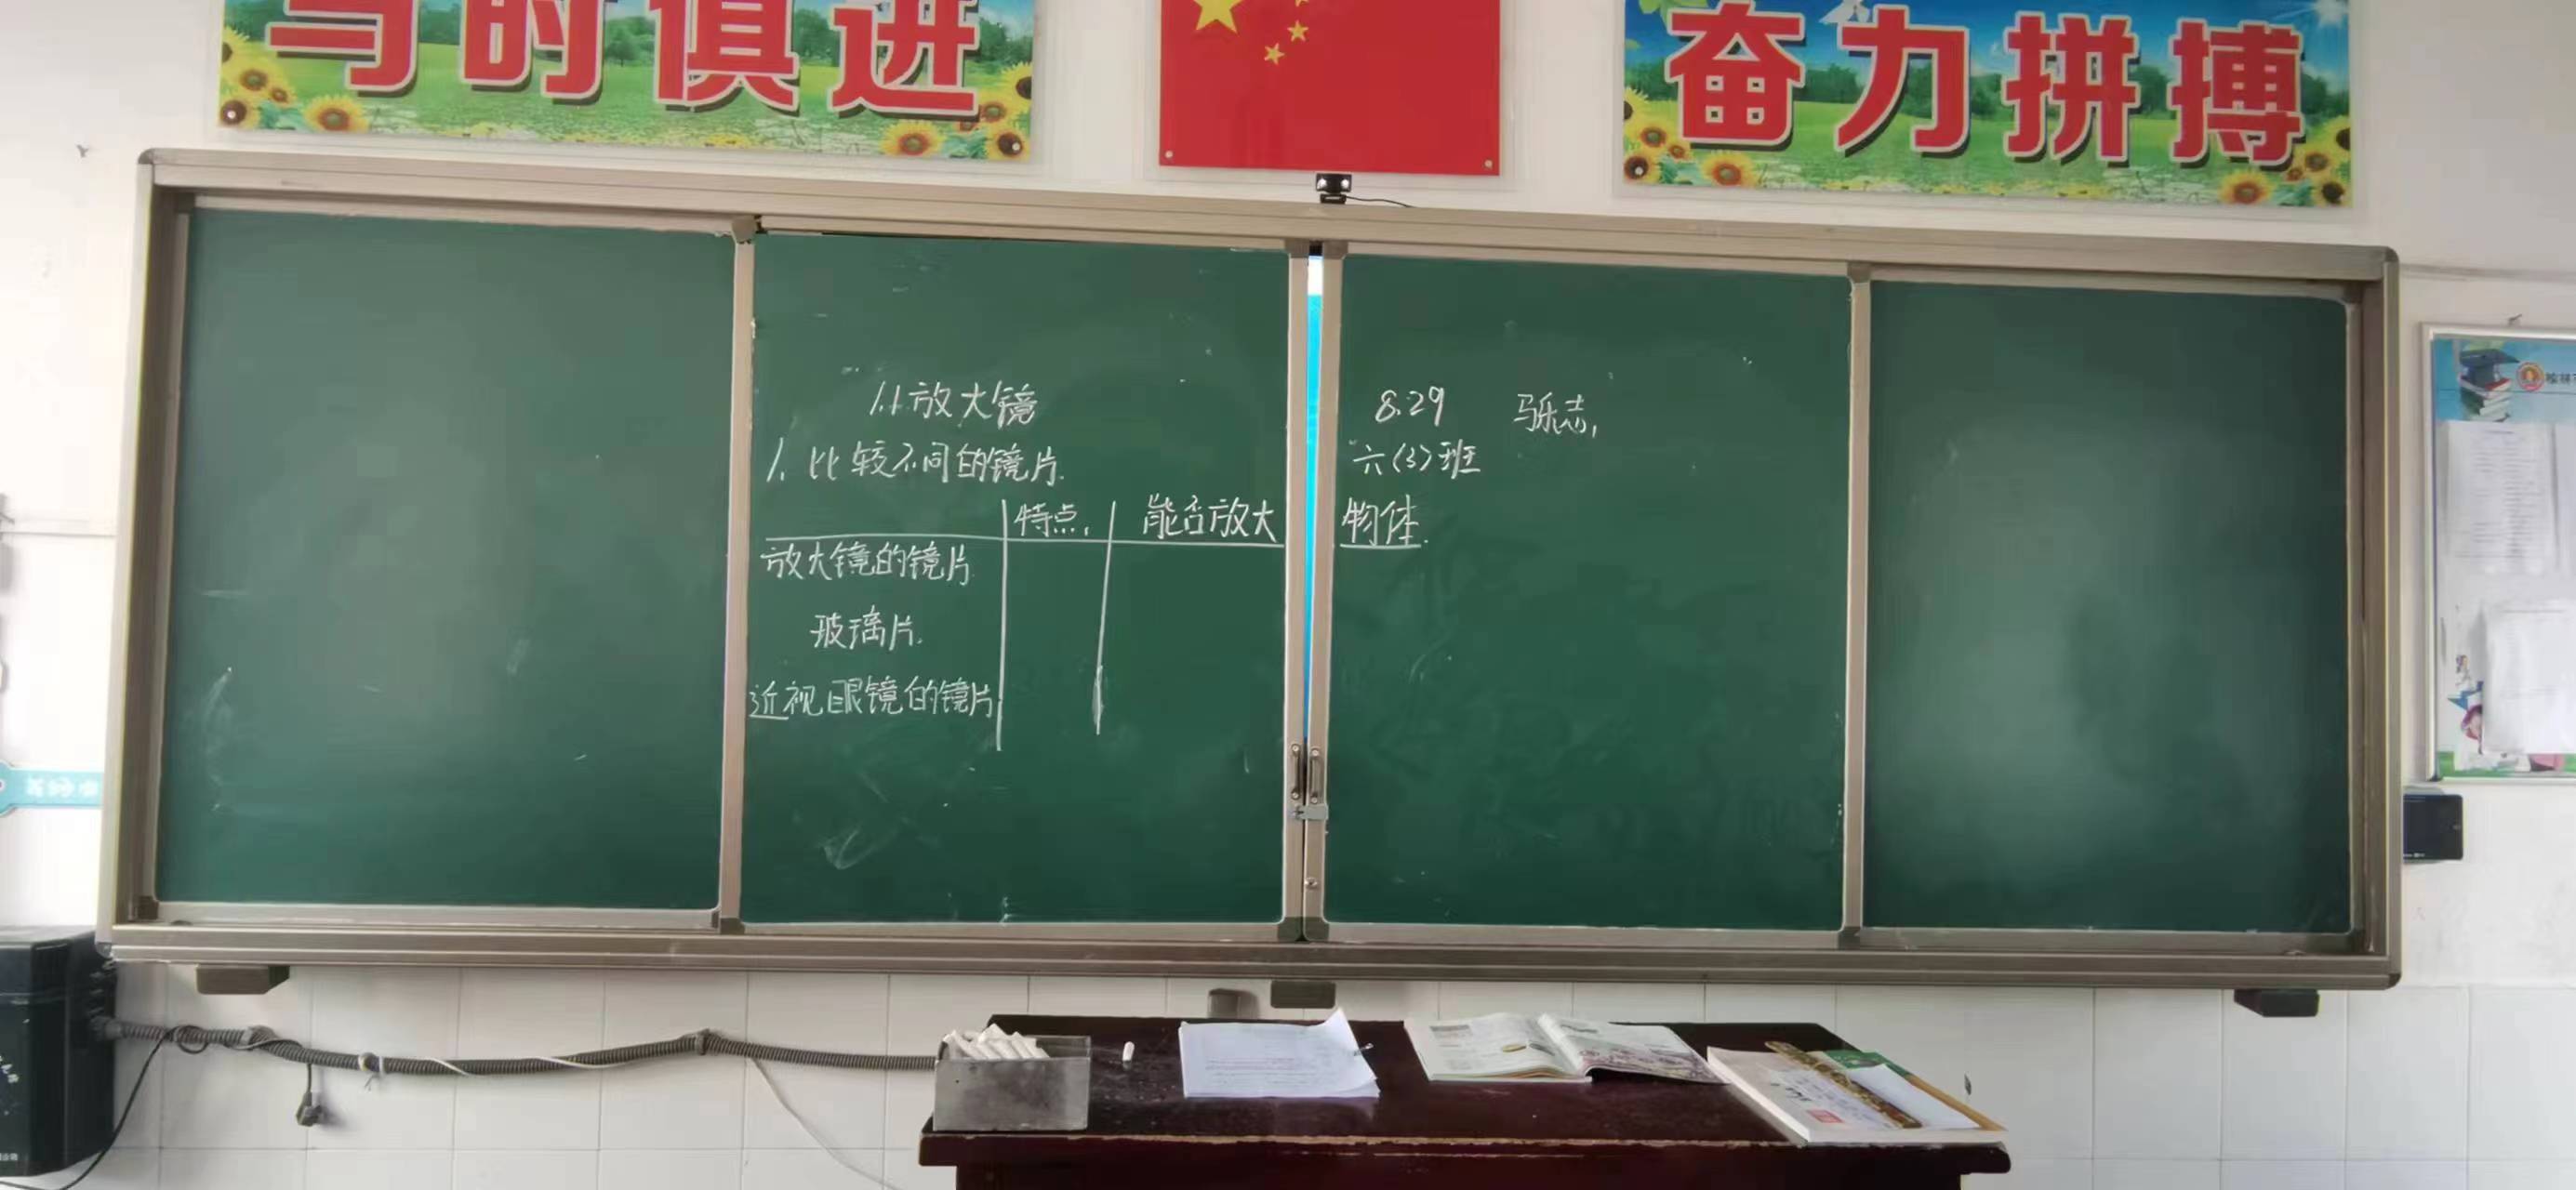 与时俱进
奋力拼搏
1.1 放大镜
8.29 马乐志,
1. 比较不同的镜片.
六(3)班
特点, 能否放大物体.
放大镜的镜片
玻璃片.
近视眼镜的镜片